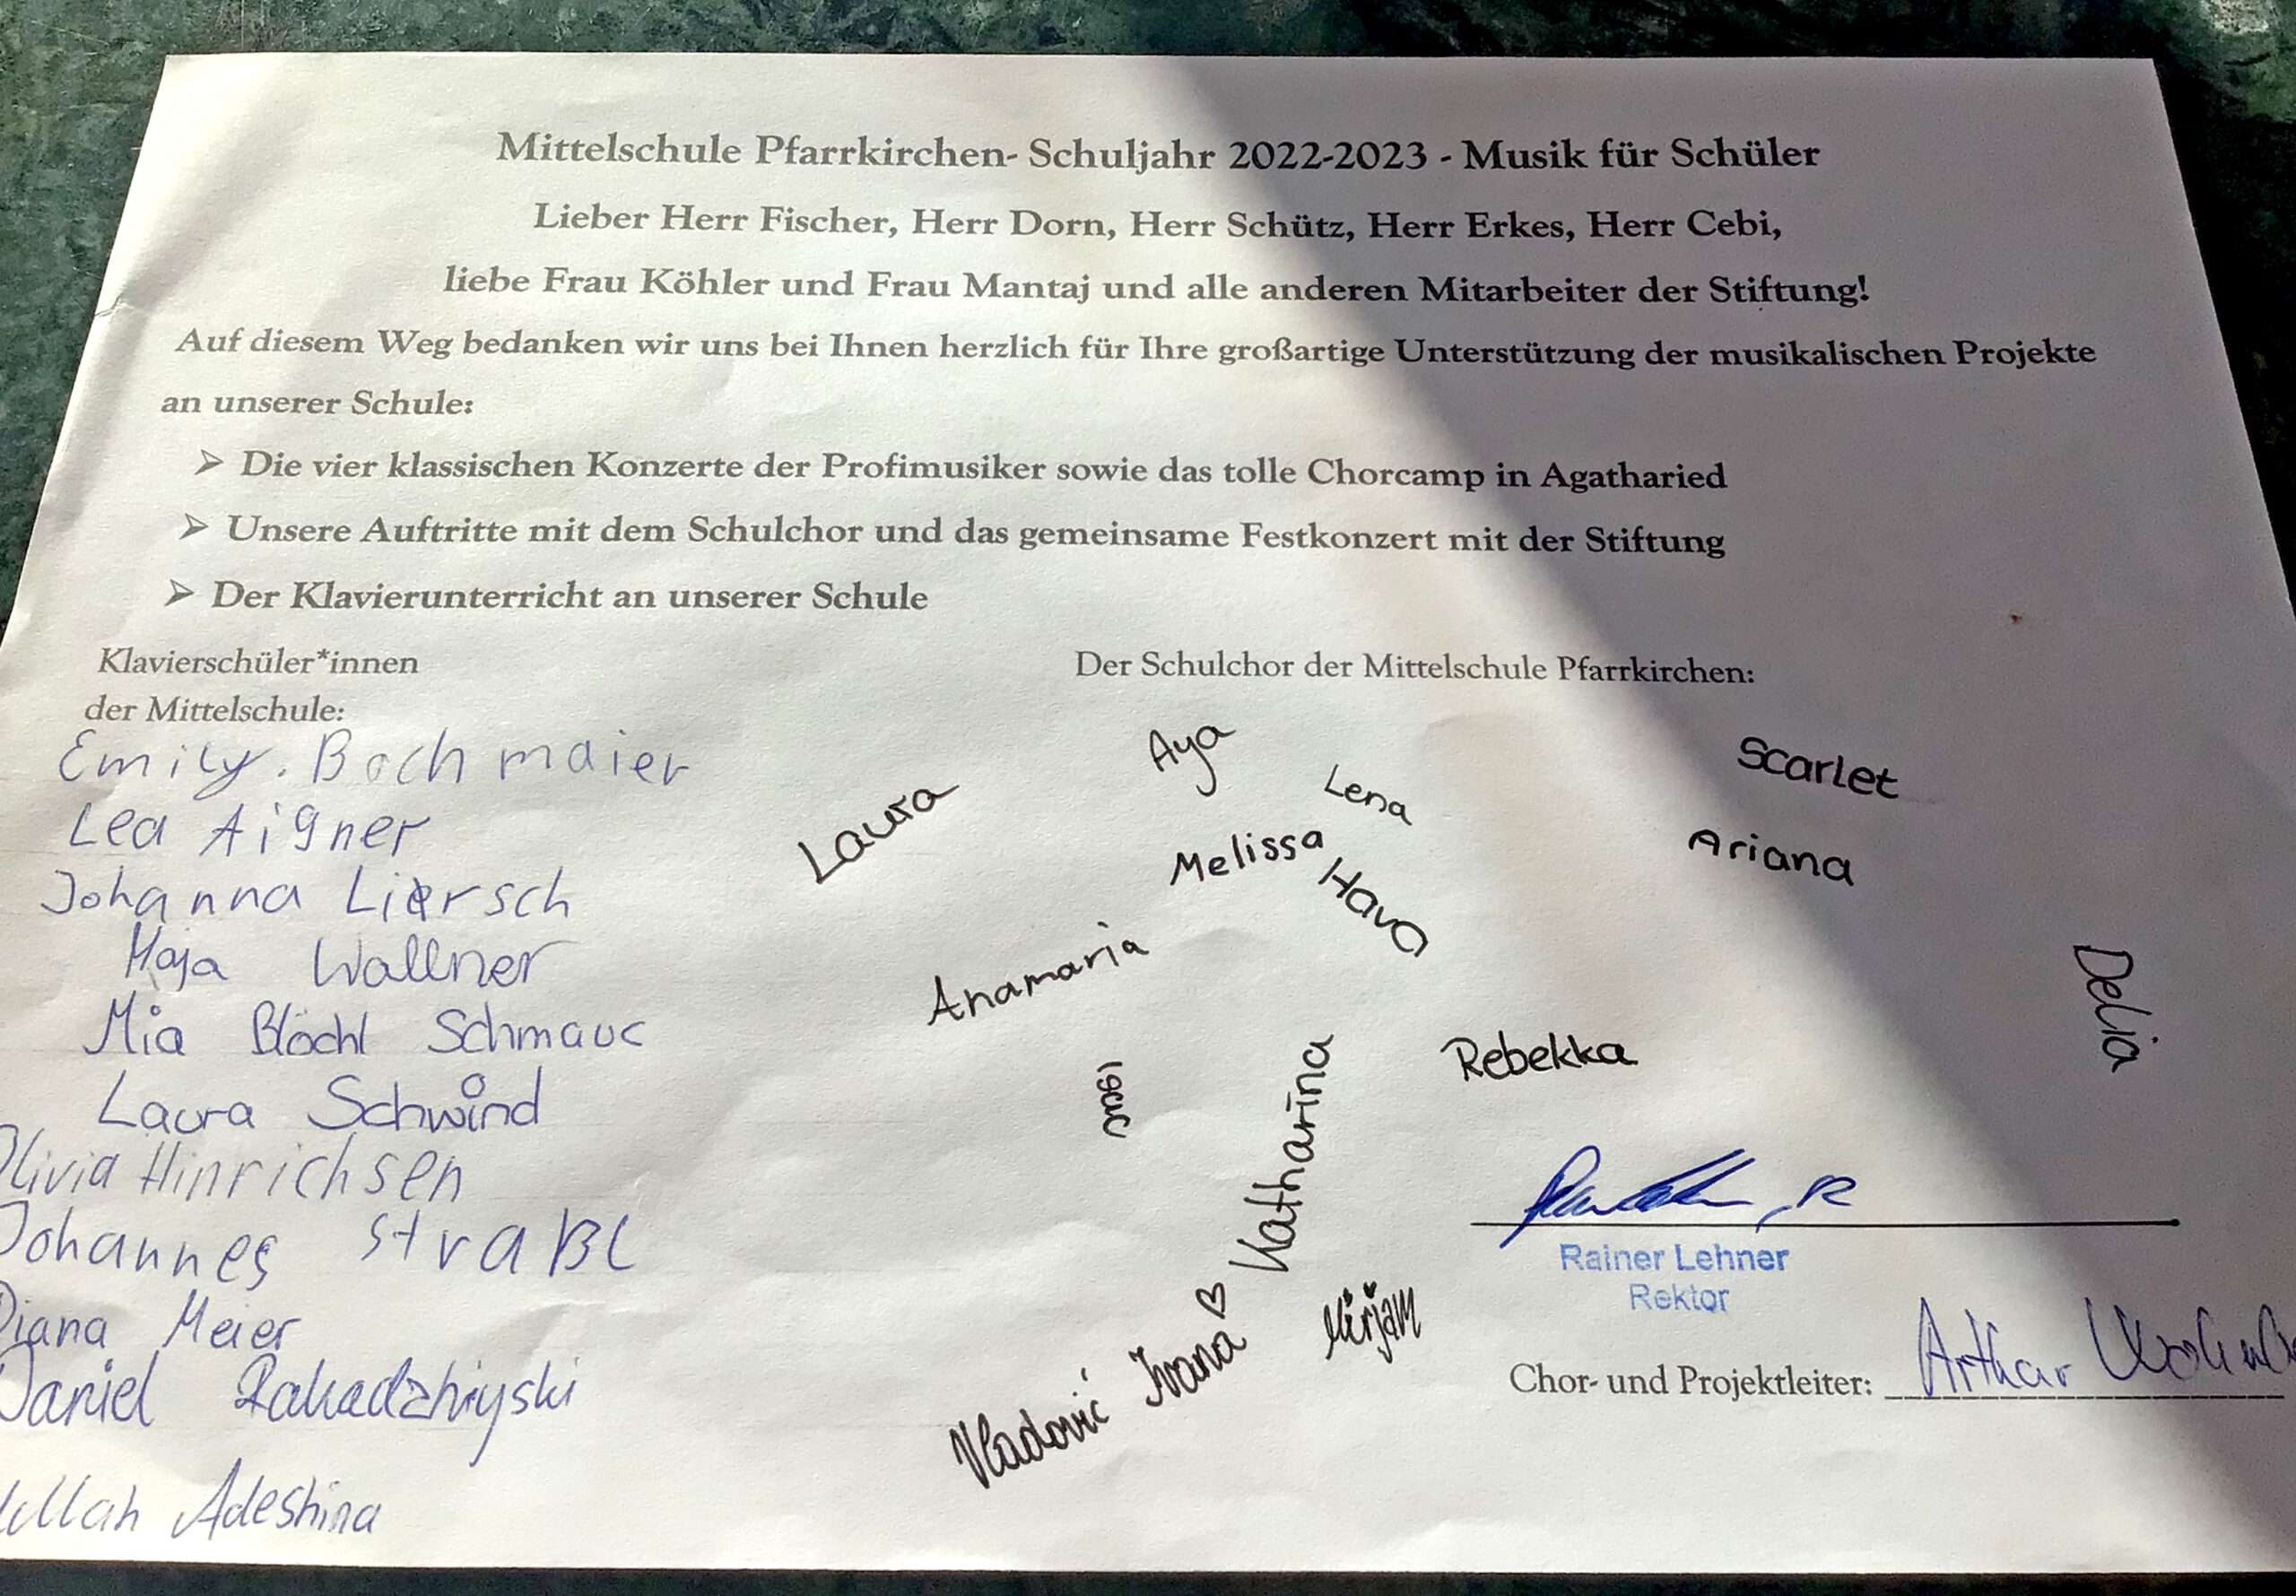 Mittelschule Pfarrkirchen- Schuljahr 2022-2023 - Musik für Schüler
Lieber Herr Fischer, Herr Dorn, Herr Schütz, Herr Erkes, Herr Cebi,
liebe Frau Köhler und Frau Mantaj und alle anderen Mitarbeiter der Stiftung!
Auf diesem Weg bedanken wir uns bei Ihnen herzlich für Ihre großartige Unterstützung der musikalischen Projekte
an unserer Schule:
➢ Die vier klassischen Konzerte der Profimusiker sowie das tolle Chorcamp in Agatharied
➢ Unsere Auftritte mit dem Schulchor und das gemeinsame Festkonzert mit der Stiftung
➢ Der Klavierunterricht an unserer Schule
Klavierschüler*innen
der Mittelschule:
Emily. Bachmaier
Lea Aigner
Johanna Liersch
Maja Wallner
Mia Blöchl Schmauc
Laura Schwind
Olivia Hinrichsen
Johannes Straßl
Diana Meier
Daniel
Adeshina
Der Schulchor der Mittelschule Pfarrkirchen:
Aya
Lena
Scarlet
Laura
Melissa
Ariana
Hava
Anamaria
Delia
Rebekka
Katharina
Mirjam
Vladović Ivana ♡
Rainer Lehner
Rektor
Chor- und Projektleiter: Arthur